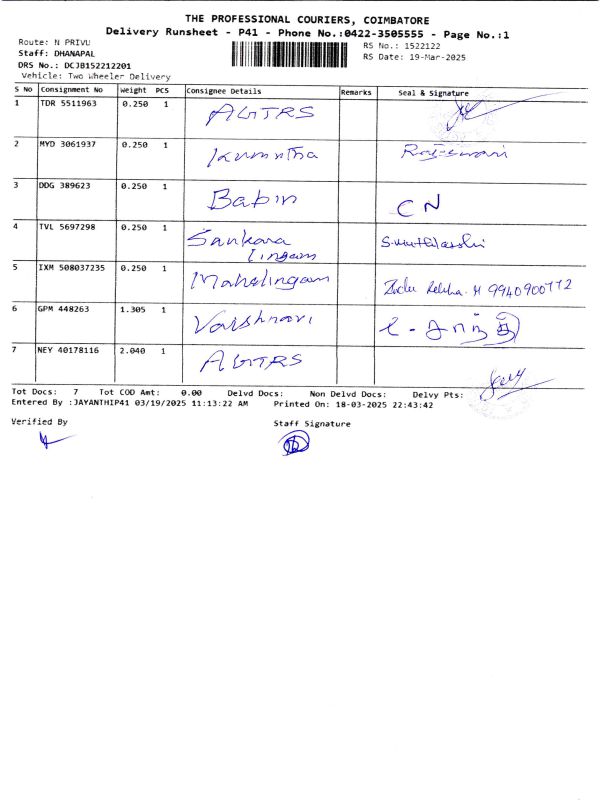 THE PROFESSIONAL COURIERS, COIMBATORE
Delivery Runsheet - P41 - Phone No.:0422-3505555 - Page No.:1
Route: N PRIVU
Staff: DHANAPAL
DRS No.: DCJB152212201
Vehicle: Two Wheeler Delivery
RS No.: 1522122
RS Date: 19-Mar-2025
S No Consignment No Weight PCS Consignee Details Remarks Seal & Signature
1 TDR 5511963 0.250 1 AGTRS
2 MYD 3061937 0.250 1
3 DDG 389623 0.250 1 Babin CN
4 TVL 5697298 0.250 1 Sankara
Lingam
5 IXM 508037235 0.250 1 Mahalingam 9940900772
6 GPM 448263 1.305 1 Vaishnavi
7 NEY 40178116 2.040 1 AGTRS
Tot Docs: 7 Tot COD Amt: 0.00 Delvd Docs: Non Delvd Docs: Delvy Pts:
Entered By :JAYANTHIP41 03/19/2025 11:13:22 AM Printed On: 18-03-2025 22:43:42
Verified By
Staff Signature